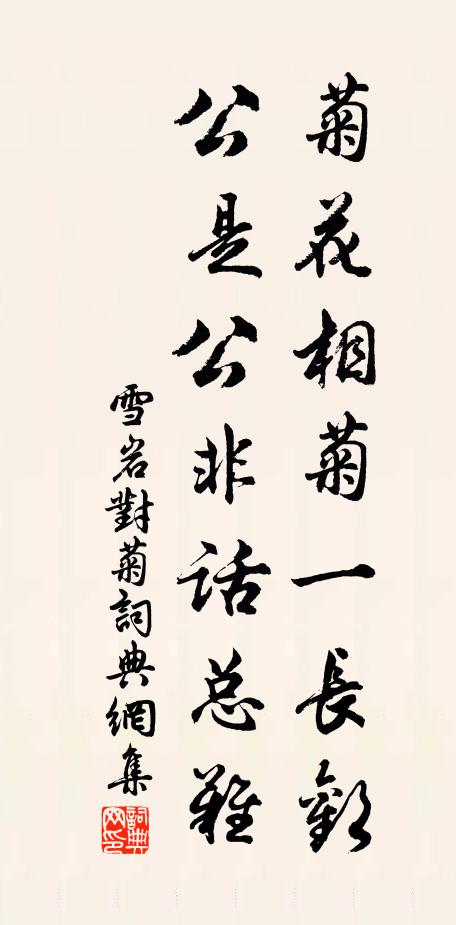 菊花相菊一長歎
公是公非話总難
雪岩對菊詞典網集
詞典網印